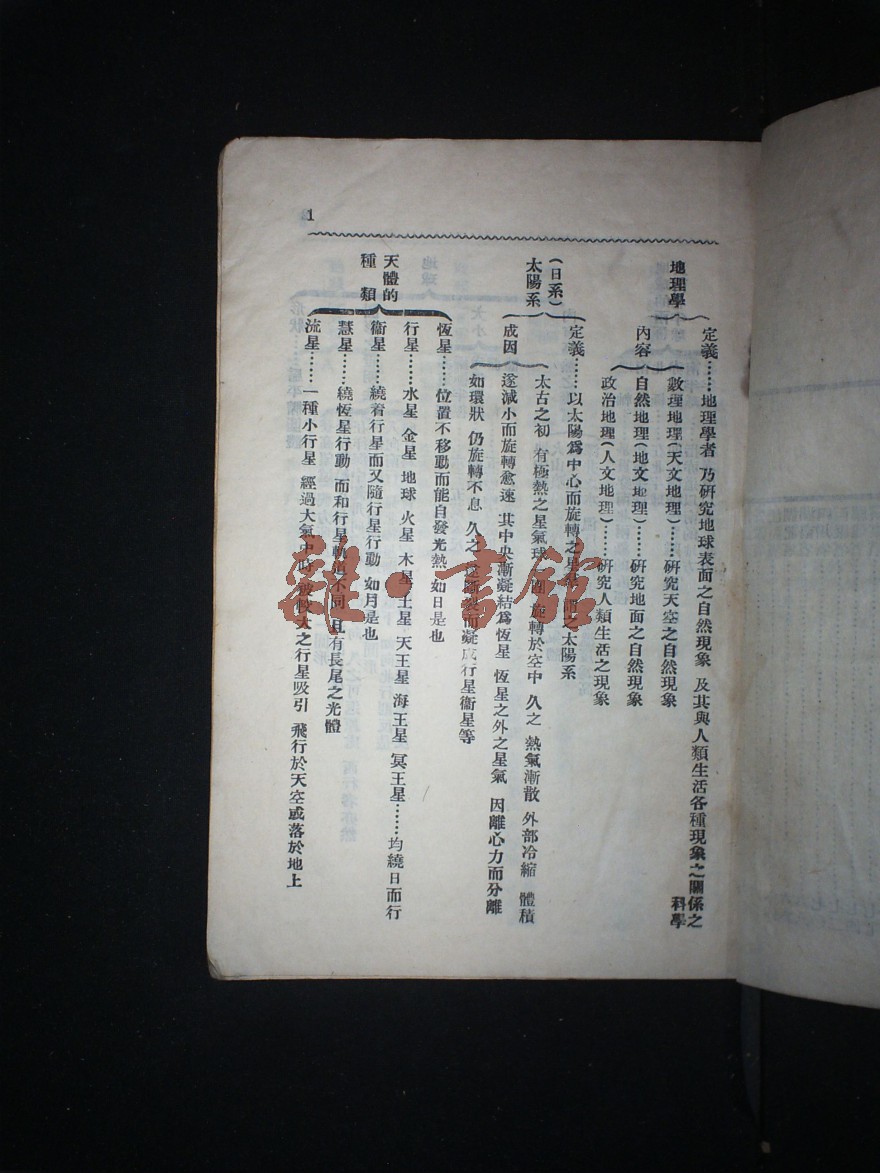 1
地理學
定義……地理學者 乃研究地球表面之自然現象 及其與人類生活各種現象之關係之科學
內容
數理地理(天文地理)……研究天空之自然現象
自然地理(地文地理)……研究地面之自然現象
政治地理(人文地理)……研究人類生活之現象
(日系)
太陽系
定義……以太陽爲中心而旋轉之星 謂之太陽系
成因
太古之初 有極熱之星氣球一團 旋轉於空中 久之 熱氣漸散 外部冷縮 體積
遂減小而旋轉愈速 其中央漸凝結爲恆星 恆星之外之星氣 因離心力而分離
如環狀 仍旋轉不息 久之 斷裂而凝成行星衞星等
天體的
種類
恆星……位置不移動而能自發光熱 如日是也
行星……水星 金星 地球 火星 木星 土星 天王星 海王星 冥王星……均繞日而行
衞星……繞着行星而又隨行星行動 如月是也
慧星……繞恆星行動 而和行星軌道不同 且有長尾之光體
流星……一種小行星 經過大氣中時 被較大之行星吸引 飛行於天空或落於地上
雜·書館